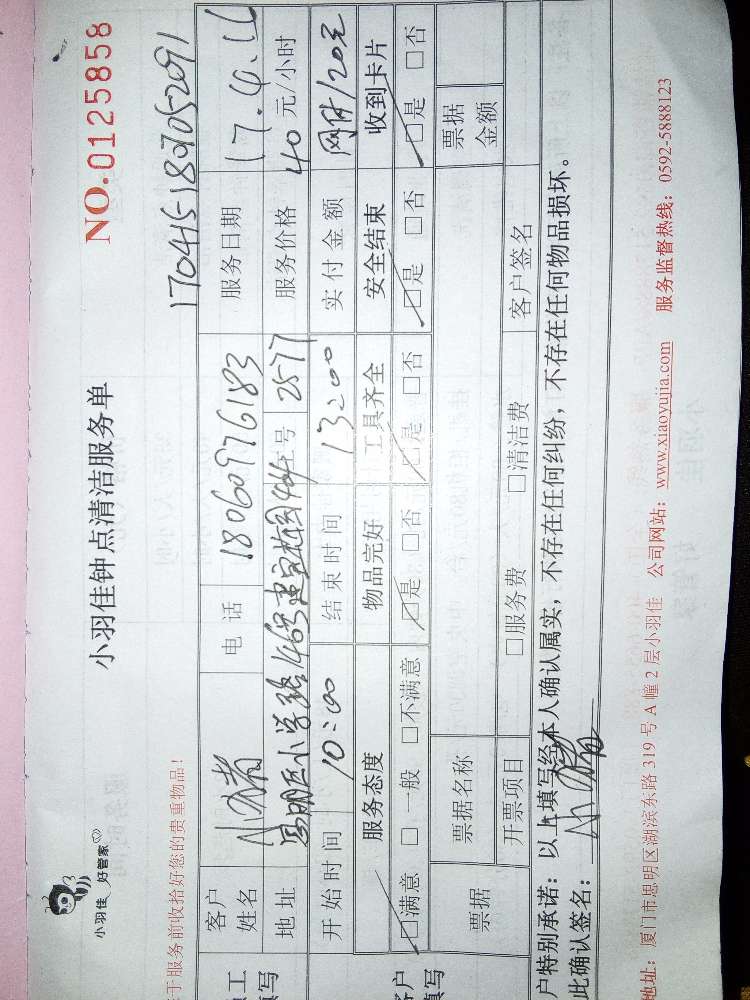 小羽佳 好管家
小羽佳钟点清洁服务单
NO.0125858
于服务前收拾好您的贵重物品！
1704151807052091
客户姓名 电话 18060976183 服务日期 17.4.16
地址 思明区小学路146号建宝花园404 工号 2577 服务价格 40 元/小时
开始时间 10:00 结束时间 13:00 实付金额 网付120元
服务态度 物品完好 工具齐全 安全结束 收到卡片
□满意 □一般 □不满意 □是 □否 □是 □否 □是 □否 □是 □否
票据 票据名称 票据金额
开票项目 □服务费 □清洁费 客户签名
户特别承诺：以上填写经本人确认属实，不存在任何纠纷，不存在任何物品损坏。
此确认签名：
地址：厦门市思明区湖滨东路 319 号 A 幢 2 层小羽佳 公司网站：www.xiaoyujia.com 服务监督热线：0592-5888123